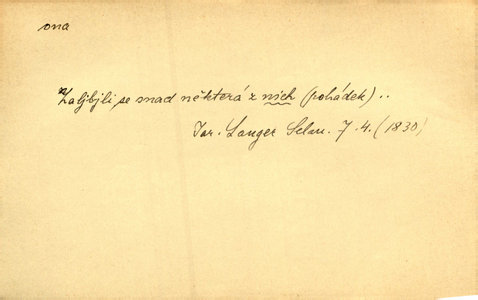 ona
Zaljbjli se snad některá z nich (pohádek)..
Jar. Langer Selan. 7.4. (1830)